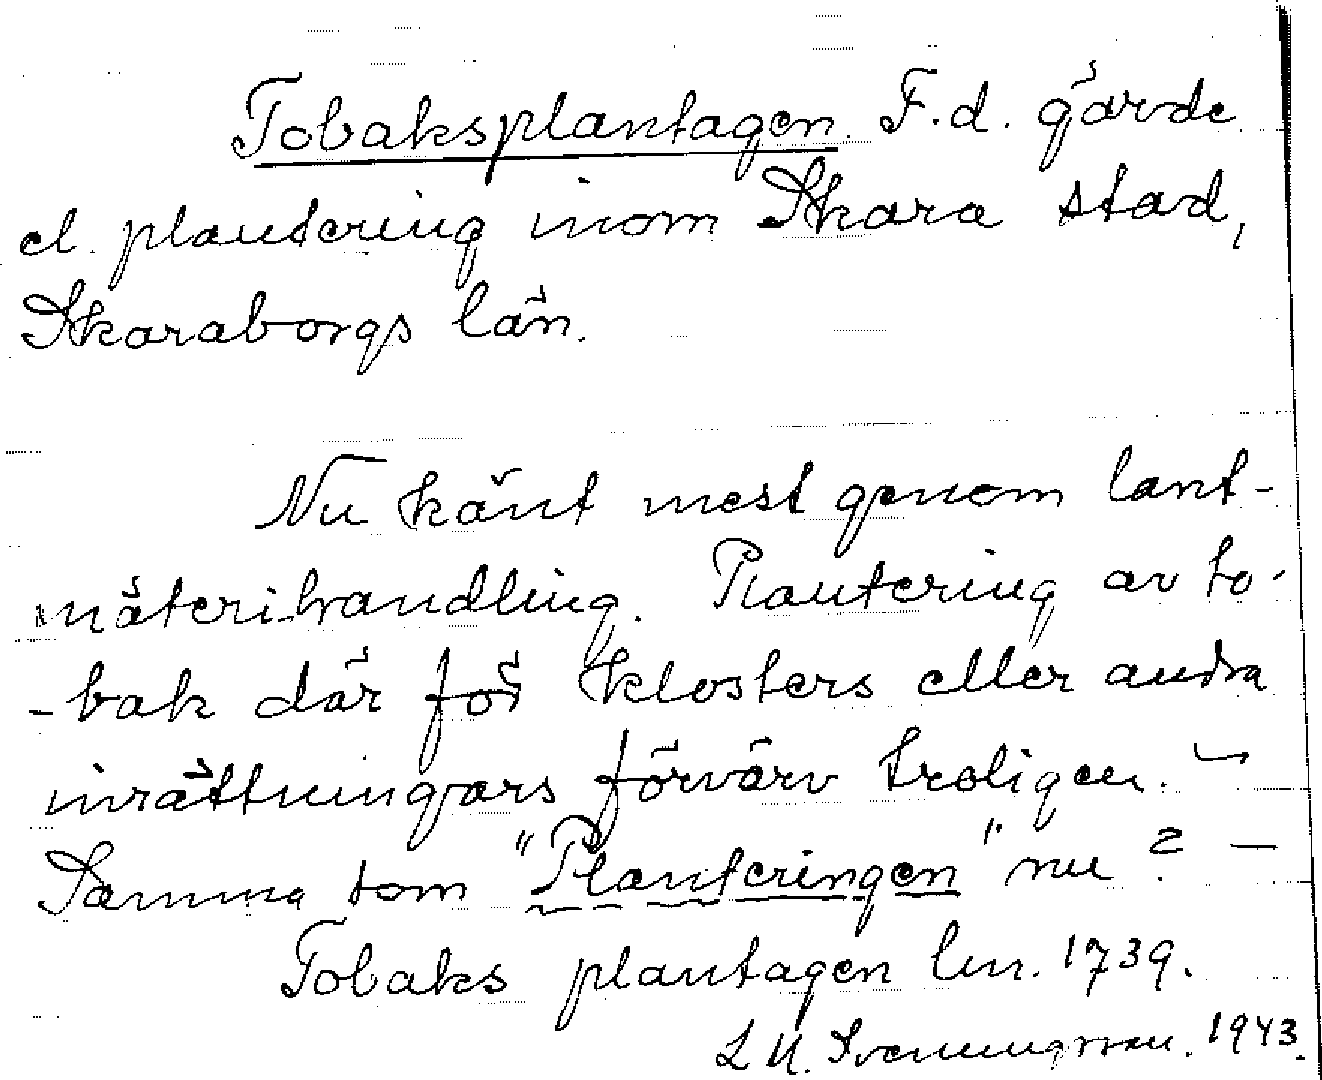 Tobaksplantagen. F.d. gärde
el. plantering inom Skara stad,
Skaraborgs län.
Nu känt mest genom lant-
mäterihandling. Plantering av to-
-bak där för klosters eller andra
inrättningars förvärv troligen. –
Samma som "Planteringen" nu? –
Tobaks plantagen lm. 1739.
Svenningsson. 1943.